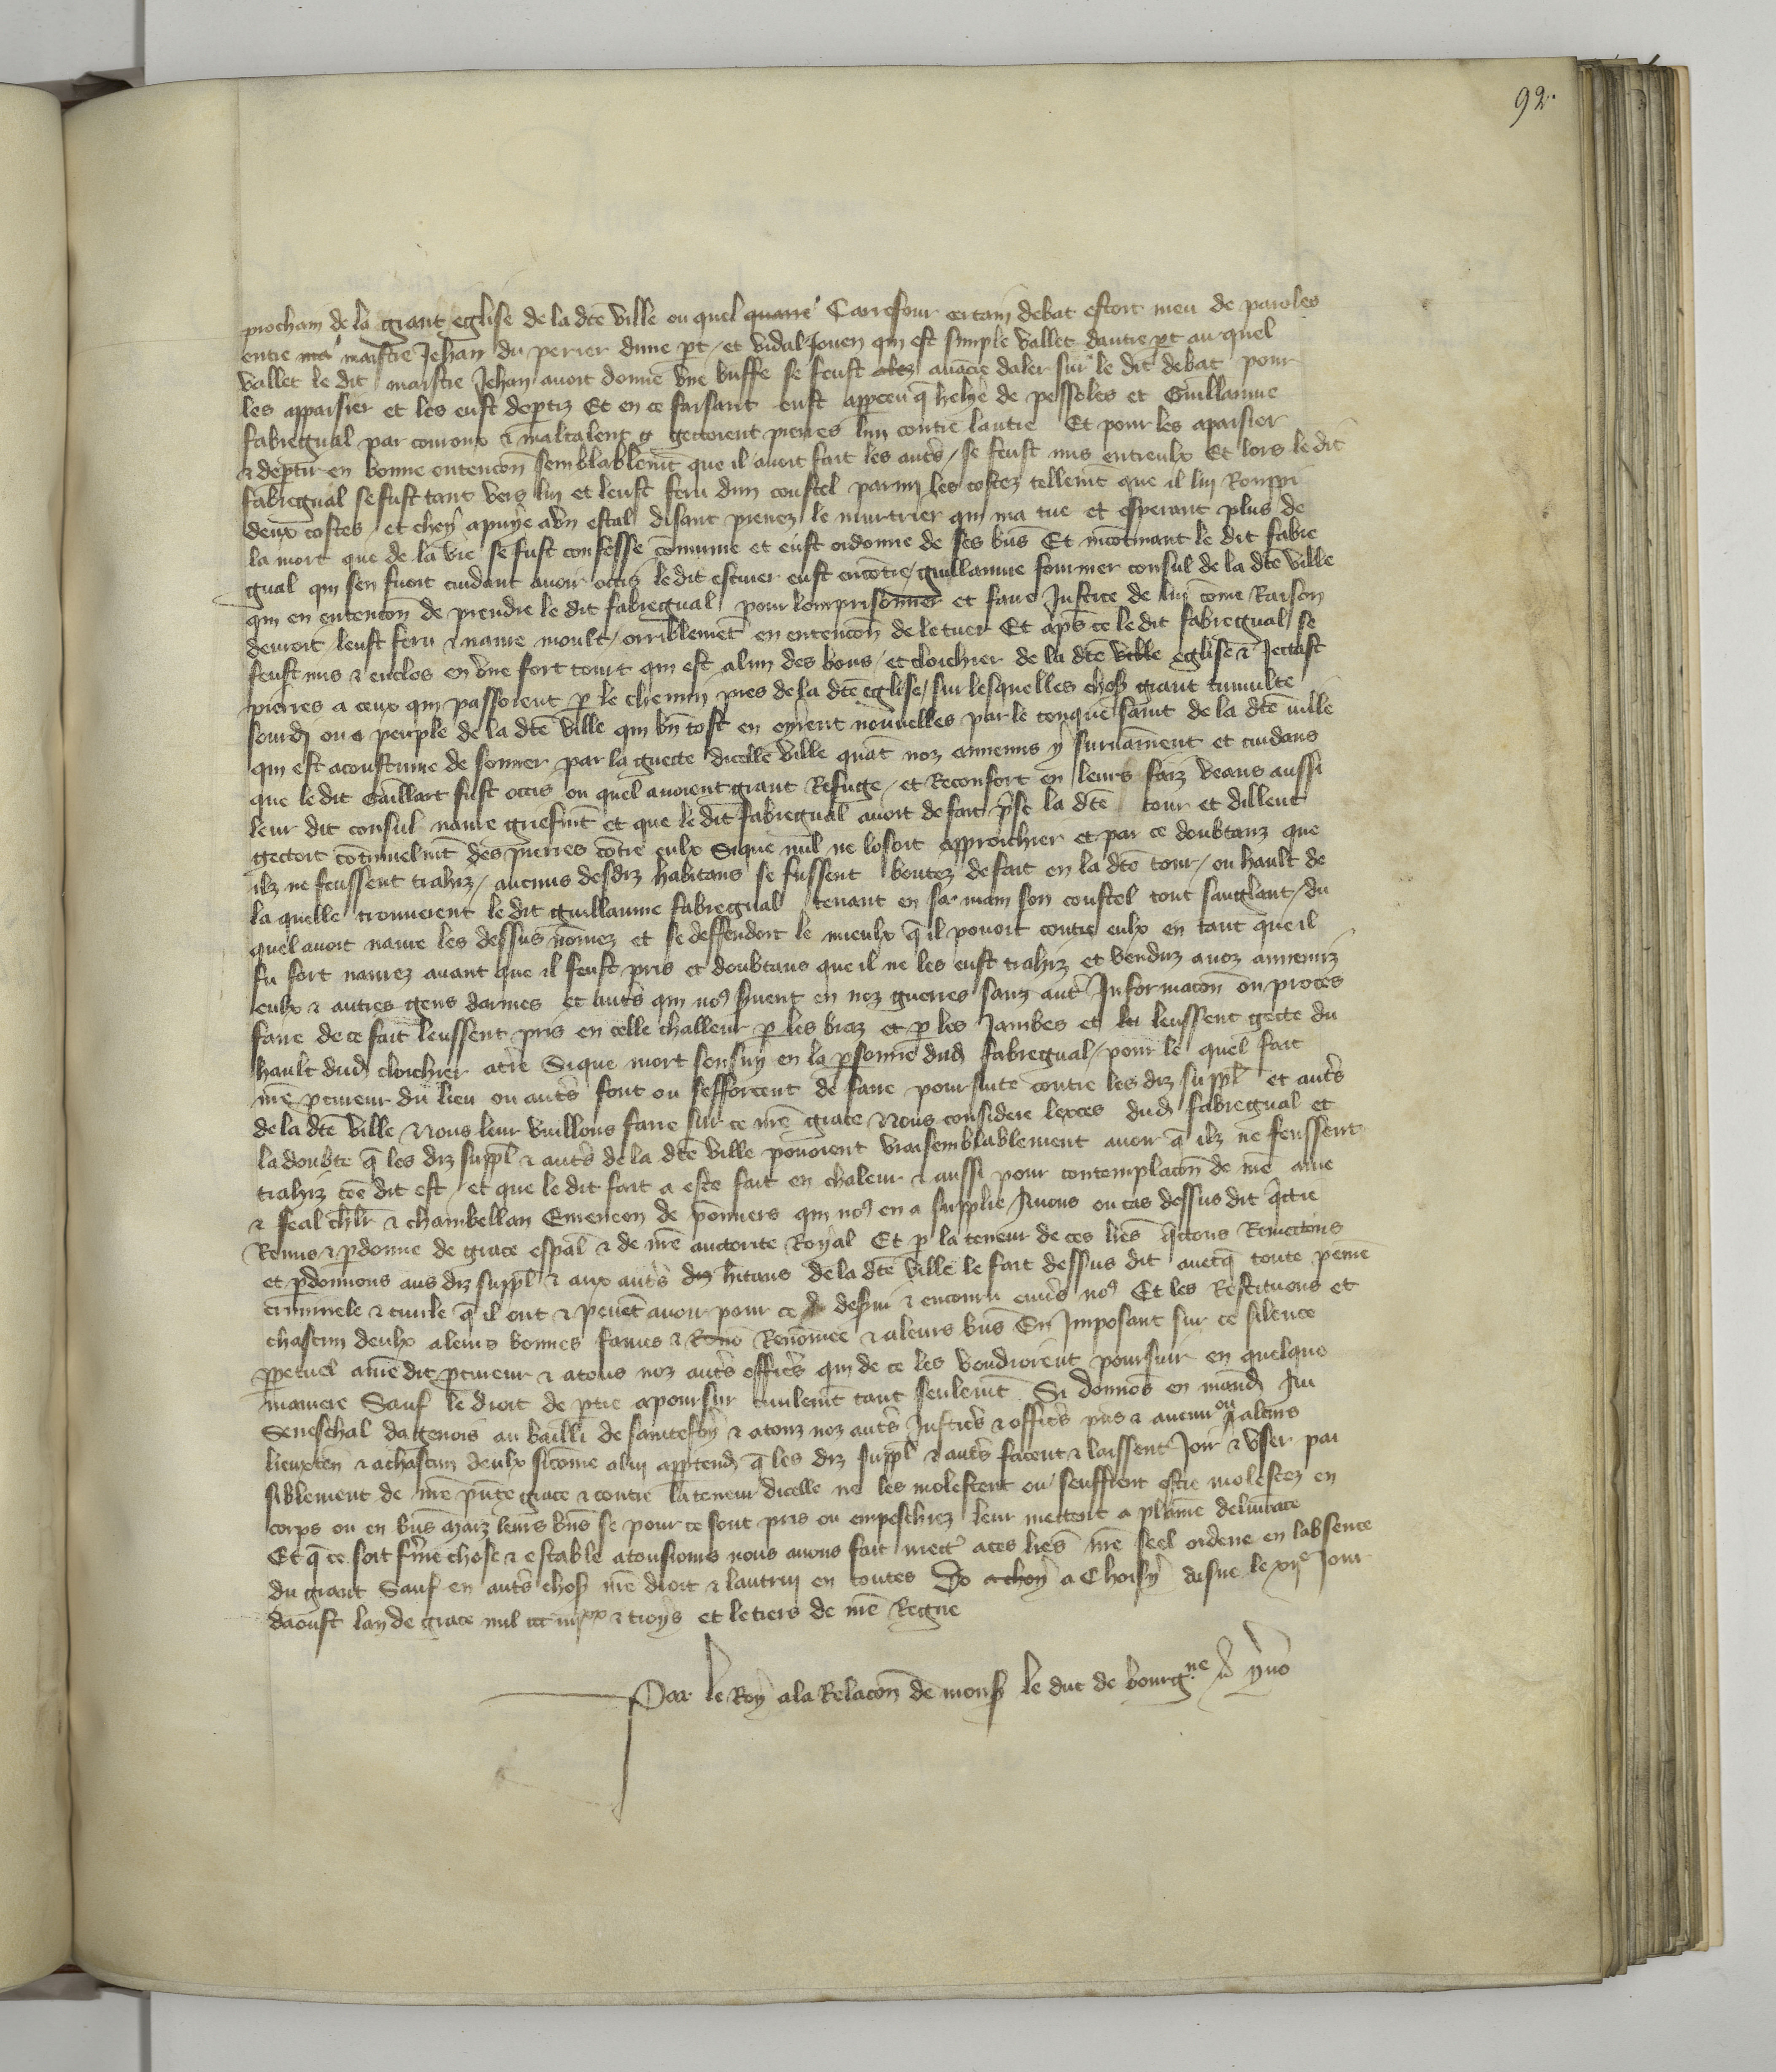 92.
prochain de la grant eglise de la dte ville ou quel quarre Carrefour certain debat estoit meu de paroles
entre ma maistre Jehan du perier dune pt et vidal Jouen qui est simple vallet dautre pt au quel
vallet le dit maistre Jehan avoit donne une buffe se feust avacie daler sur le dit debat pour
les appaisier et les eust deptiz Et en ce faisant eust apperceu q helye de pessoles et Guillaume
fabregual par courroux & maltalent gectoient pierres lun contre lautre Et pour les apaisier
& deptir en bonne entencon semblablemt que il avoit fait les auts se feust mis entreulx Et lors le dit
fabregual se fust tant vers lui et leust feru dun coustel parmi les costez tellemt que il lui Rompi
deux costes et chey apuye a un estal disant prenez le murtrier qui ma tue et esperant plus de
la mort que de la vie se fust confesse comunie et eust ordonne de ses bns Et incotinant le dit fabre
gual qui sen fuoit cuidant avoir occis le dit escuier eust encotre guillaume fournier consul de la dte ville
qui en entencon de prendre le dit fabregual pour lemprisonner et faire Justice de lui come Raison
devoit leust feru & navre moult orriblemet en entencon de le tuer Et aps ce le dit fabregual se
feust mis & enclos en une fort tour qui est a lun des bous et cloichier de la dte ville eglise & Jectast
pierres a ceux qui passoient p le chemin pres de la dte eglise sur lesquelles choss grant tumulte
sourdi ou peuple de la dte ville qui bn tost en oyrent nouvelles par le toquesaint de la dte ville
qui est acoustume de sonner par la guette dicelle ville quat noz ennemis y surviennent et cuidans
que le dit Gaillart fust occis ou quel avoient grant Refuge et Reconfort en leurs faiz veans aussi
leur dit consul navre griefmt et que le dit fabregual avoit de fait pse la dte tour et dillent
gectoit cotinuelmt des pierres cotre eulx Sique nul ne losoit approichier et par ce doubtanz que
ilz ne feussent trahiz aucuns desdiz habitans se fussent boutez de fait en la dte tour ou hault de
la quelle trouverent le dit guillaume fabregual tenant en sa main son coustel tout sanglant du
quel avoit navre les dessus nomez et se deffendoit le mieulx q il povoit contre eulx en tant que il
fu fort navrez avant que il feust pris et doubtans que il ne les eust trahiz et venduz a noz annemiz
eulx & autres gens darmes et auts qui nos svent en noz guerres sanz autr Informacon ou proces
faire de ce fait leussent pris en celle challeur p les braz et p les Jambes et leussent gecte du
hault dud cloichier atre Sique mort sensuy en la psonne dud fabregual pour le quel fait
nre pcureur du lieu ou auts font ou sefforcent de faire poursuite contre les diz suppl et auts
de la dte ville Nous leur vuillons faire sur ce nre grace Nous considere lexces dud fabregual et
la doubte q les diz suppl & auts de la dte ville povoient vraisemblablement avoir q ilz ne feussent
trahiz coe dit est et que le dit fait a este fait en chaleur & aussi pour contemplacon de nre ame
& feal chlr & chambellan Emeneon de pomiers qui nos en a supplie Avons ou cas dessus dit qicte
Remis & pdonne de grace espal & de nre auctorite Royal Et p la teneur de ces lres qictons Remectons
et pdonnons aus diz suppl & aux auts hitans de la dte ville le fait dessus dit avecq toute peine
criminele & civile q il ont & peuet avoir pour ce desvi & encouru envs nos Et les Restituons et
chascun deulx a leurs bonnes fames & Renomee & a leurs bns En Imposant sur ce silence
ppetuel a nre dit pcureur & a tous noz auts offics qui de ce les voudroient poursuir en quelque
maniere Sauf le droit de ptie a poursuir civilemt tant seulemt Si donnos en mand Au
Seneschal dagenois au bailli de & a touz noz auts Justics & offics pns & avenir ou a leurs
lieuxten & a chascun deulx sicome a lui apptend q les diz suppl & auts facent & laissent Joir & user pai
siblement de nre pnte grace & contre la teneur dicelle ne les molestent ou seuffrent estre molestez en
corps ou en bns maiz leurs bns se pour ce sont pris ou empeschiez leur mettent a plaine delivrace
Et q ce soit ferme chose & estable a tousjours nous avons fait mectr a ces lres nre seel ordene en labsence
du grant Sauf en auts choss nre droit & lautrui en toutes Do a Choisy disne le xije Jour
daoust lan de grace mil ccc iiijxx & troys et le tiers de nre Regne
Par le Roy a la Relacon de mons le duc de bourgne yvo